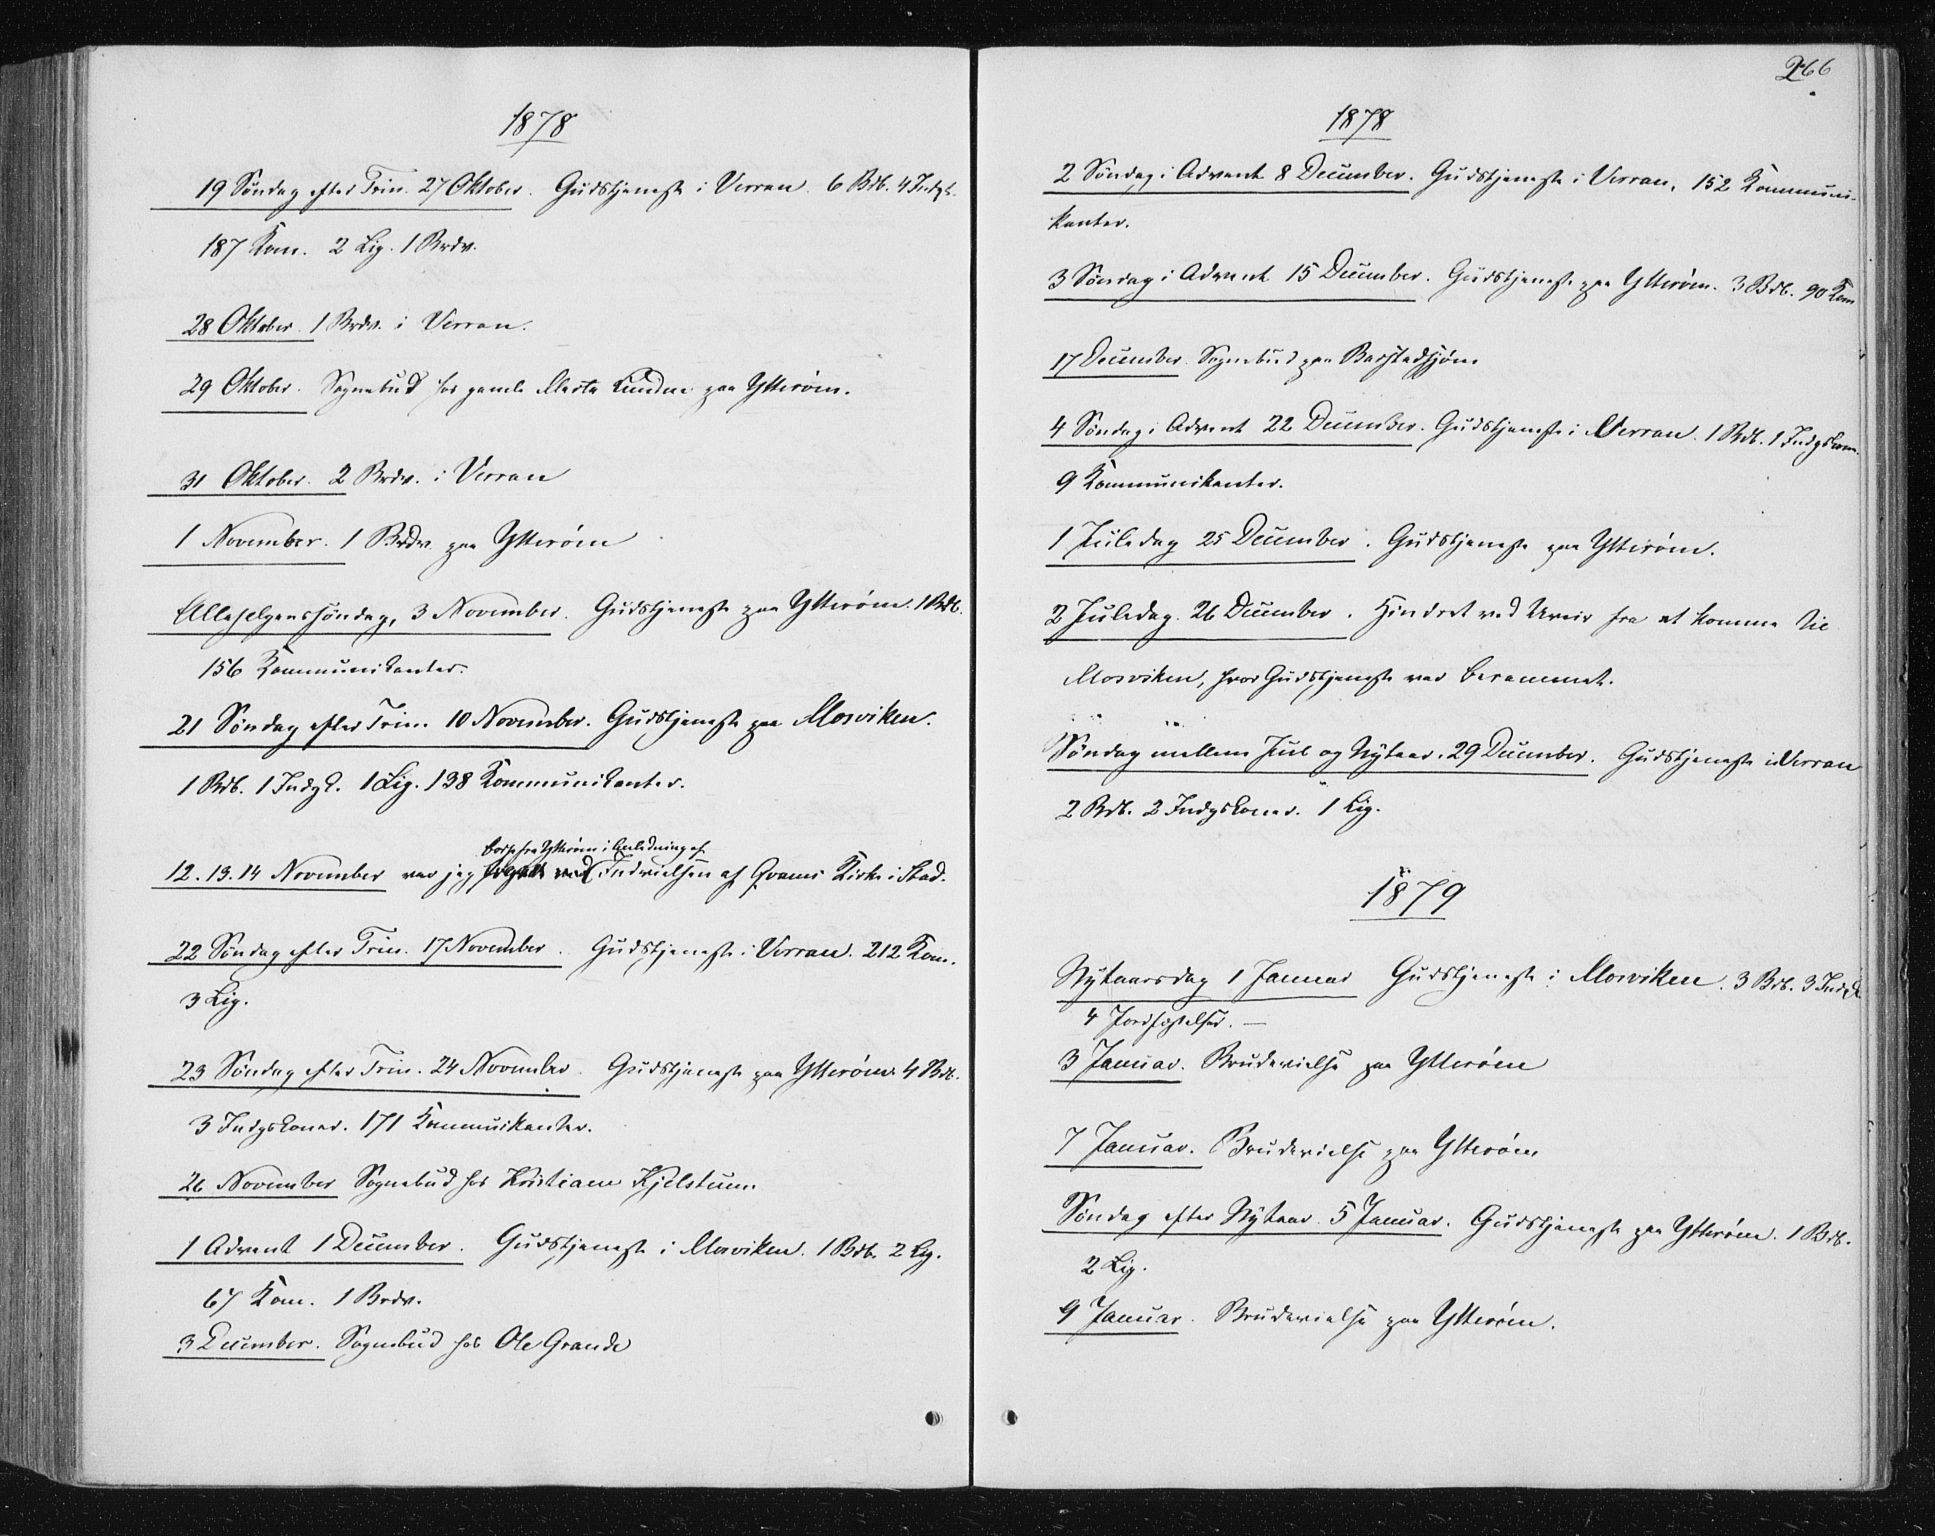 1878
19 Søndag efter Trin. 27 Oktober. Gudstjeneste i Verran. 6 Brb. 4 Indgk.
187 Kom. 2 Lig. 1 Brdv.
28 Oktober. 1 Brdv. i Verran.
29 Oktober. Sognebud hos gamle Marta paa Ytterøen.
31 Oktober. 2 Brdv. i Verran
1 November. 1 Brdv. paa Ytterøen
Allehelgenssøndag, 3 November. Gudstjeneste paa Ytterøen. 1 Brb.
156 Kommunikanter.
21 Søndag efter Trin. 10 November. Gudstjeneste paa Mosviken.
1 Brb. 1 Indgk. 1 Lig. 138 Kommunikanter.
borte fra Ytterøen i Anledning af
12. 13. 14 November var jeg Indvielsen af Qvams Kirke i Stod.
22 Søndag efter Trin. 17 November. Gudstjeneste i Verran. 212 Kom.
3 Lig.
23 Søndag efter Trin. 24 November. Gudstjeneste paa Ytterøen 4 Brb.
3 Indgskoner. 171 Kommunikanter.
26 November Sognebud hos Kristiane Hjelstuen.
1 Advent 1 December. Gudstjeneste i Mosviken. 1 Brb. 2 Lig.
67 Kom. 1 Brdv.
3 December. Sognebud hos Ole Grande
266
1878
2 Søndag i Advent 8 December. Gudstjeneste i Verran. 152 Kommuni-
kanter.
3 Søndag i Advent 15 December. Gudstjeneste paa Ytterøen. 3 Brb. 90 Kom
17 December. Sognebud paa
4 Søndag i Advent 22 December. Gudstjeneste i Verran. 1 Brb. 1 Indgskone.
9 Kommunikanter.
1 Juledag 25 December. Gudstjeneste paa Ytterøen.
2 Juledag. 26 December. Hindret ved Uveir fra at komme til
Mosviken, hvor Gudstjeneste var berammet.
Søndag mellem Jul og Nytaar. 29 December. Gudstjeneste i Verran
2 Brb. 2 Indgskoner. 1 Lig.
1879
Nytaarsdag 1 Januar Gudstjeneste i Mosviken. 3 Brb. 3 Indgk
4 Jordfæstelser. —
3 Januar. Brudevielse paa Ytterøen
7 Januar. Brudevielse paa Ytterøen
Søndag efter Nytaar. 5 Januar. Gudstjeneste paa Ytterøen. 1 Brb.
2 Lig.
9 Januar. Brudevielse paa Ytterøen.